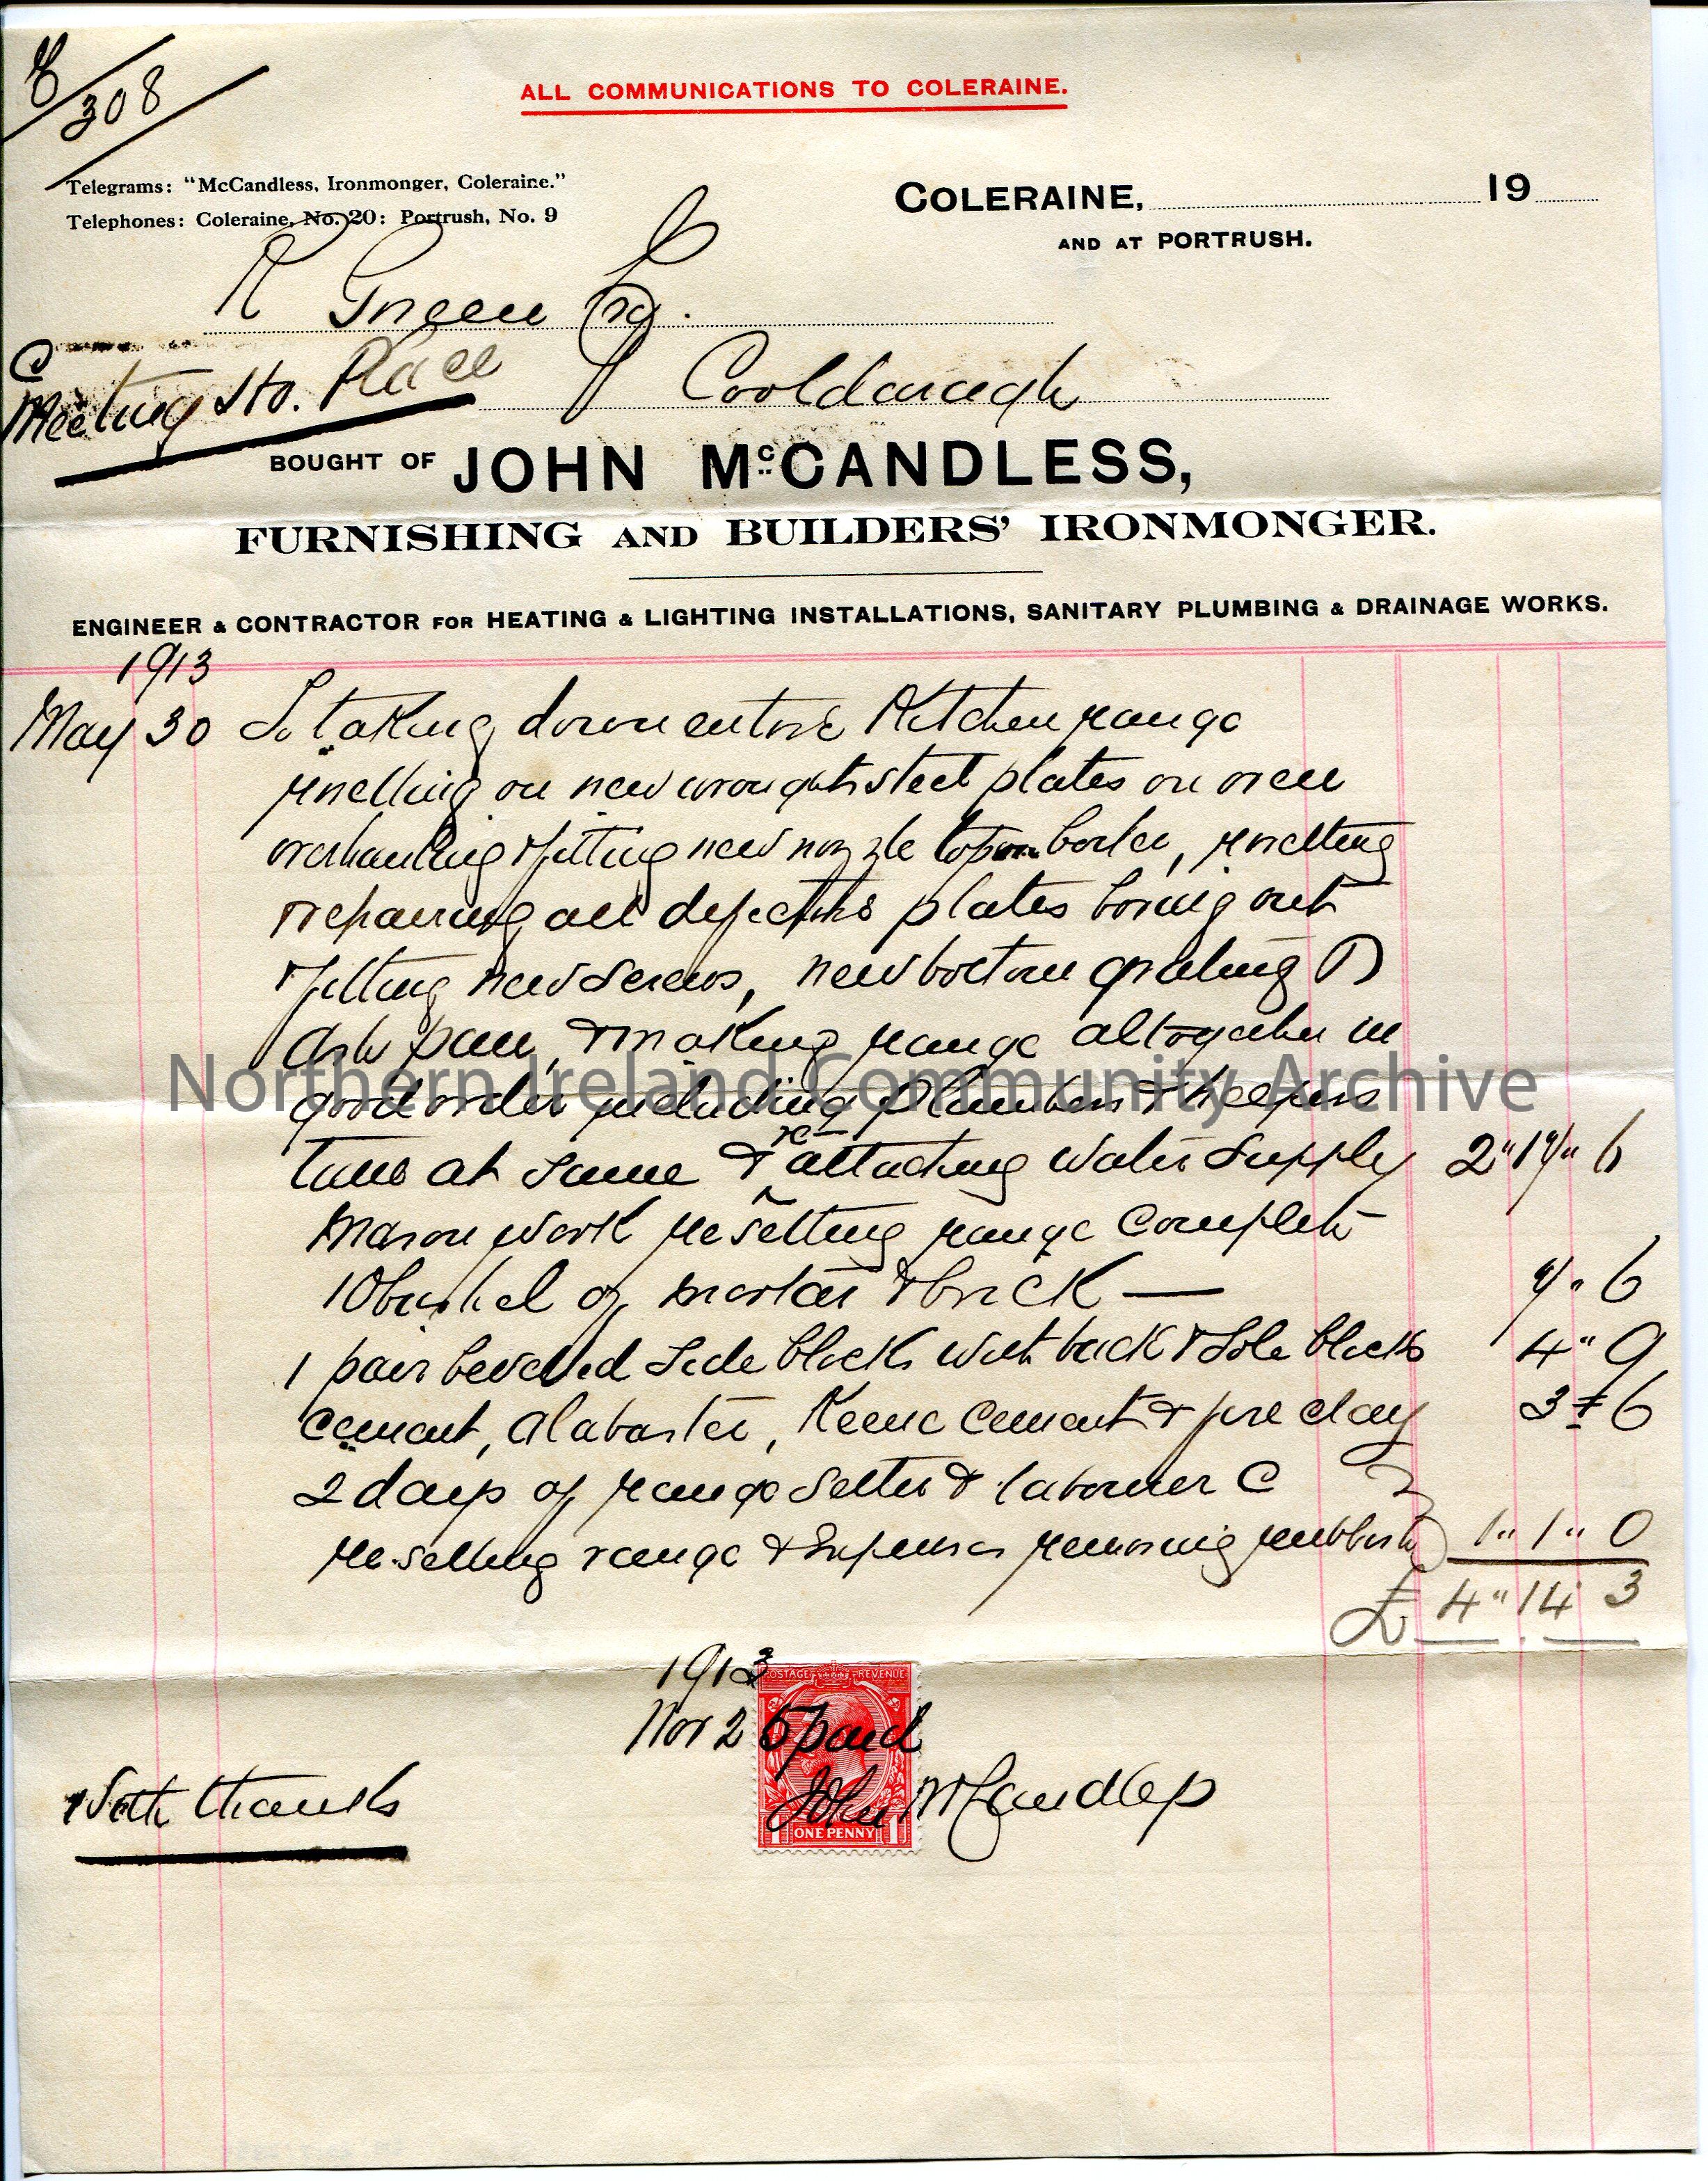 308
ALL COMMUNICATIONS TO COLERAINE.
Telegrams: "McCandless, Ironmonger, Coleraine."
Telephones: Coleraine, No. 20: Portrush, No. 9
COLERAINE, 19
AND AT PORTRUSH.
R Green Esq.
Meeting Ho. Place Cooldaragh
BOUGHT OF JOHN McCANDLESS,
FURNISHING AND BUILDERS' IRONMONGER.
ENGINEER & CONTRACTOR FOR HEATING & LIGHTING INSTALLATIONS, SANITARY PLUMBING & DRAINAGE WORKS.
1913
May 30 To taking down entire Kitchen range
on new wrought steel plates on oven
overhauling & fitting new nozzle top on boiler,
repairing all defective plates boring out
& fitting new screws, new bottom grating
Ash pan, & making range altogether in
good order including plumbers & helpers
time at same & re attaching water supply 2" 19" 6
Mason work resetting range complete
10 bushel of mortar & brick — 9" 6
1 pair bevelled side blocks with back & sole blocks 4" 9
cement, alabaster, Keene cement & fire clay 3 " 6
2 days of range setter & labourer C
re-setting range & Expenses removing rubbish 1" 1" 0
£ 4" 14 3
1913
POSTAGE REVENUE
Nov 25 paid
With thanks
John McCandless
ONE PENNY
Northern Ireland Community Archive